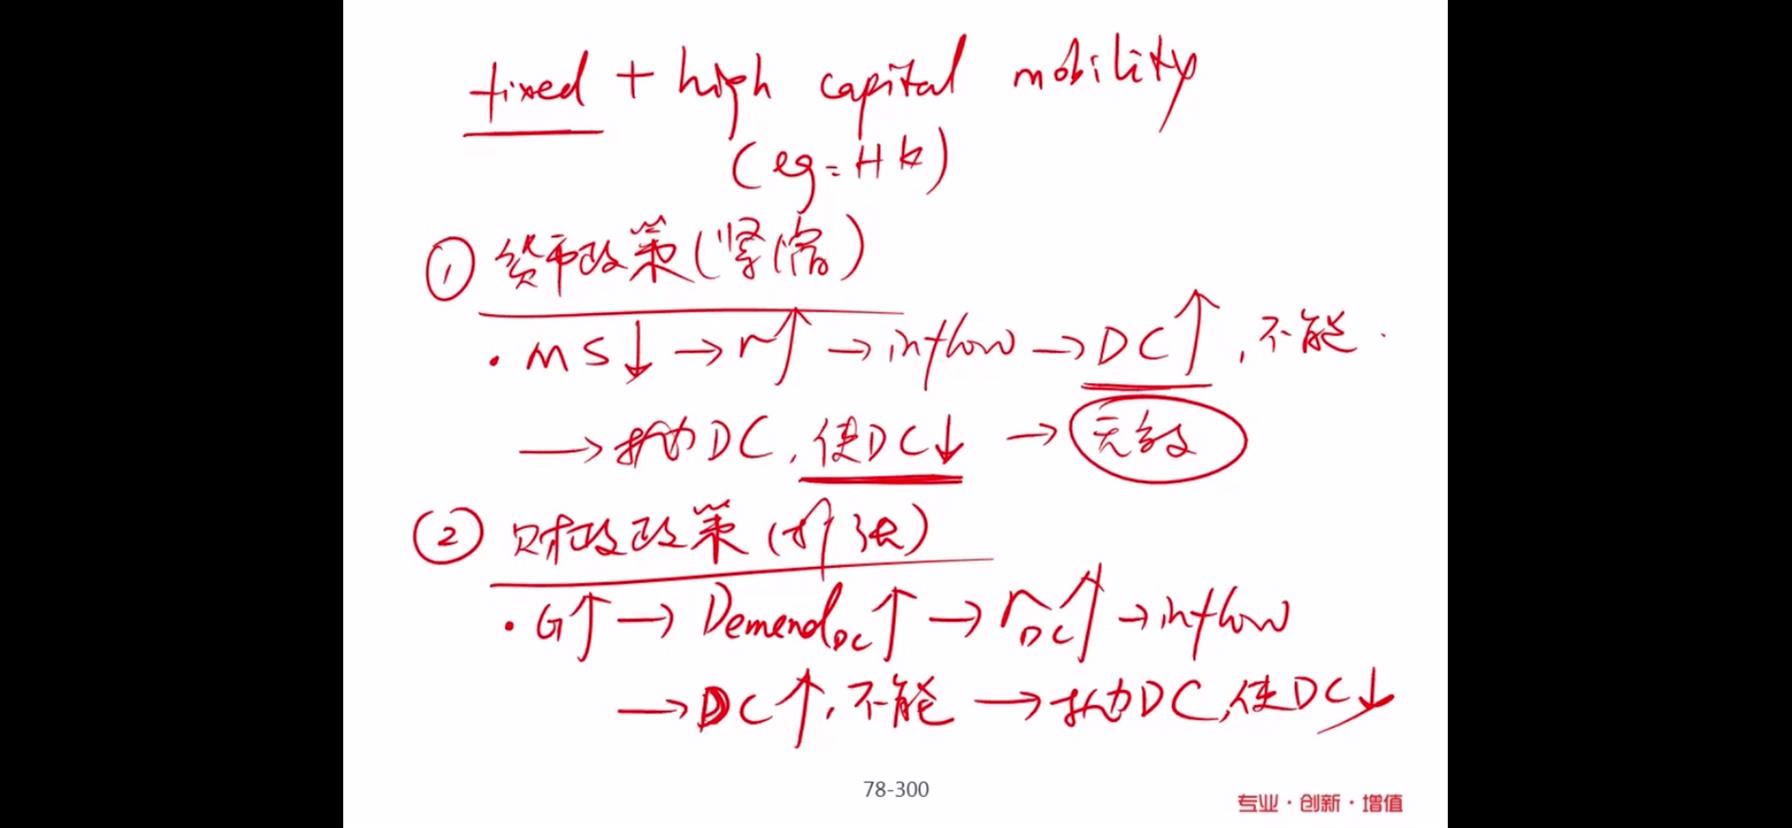 fixed + high capital mobility
(eg: HK)
① 货币政策(紧缩)
· MS↓ → r↑ → inflow → DC↑, 不能.
→ 抛DC, 使DC↓ → 无效
② 财政政策(扩张)
· G↑ → Demend DC↑ → r DC↑ → inflow
→ DC↑, 不能 → 抛DC, 使DC↓
78-300
专业·创新·增值